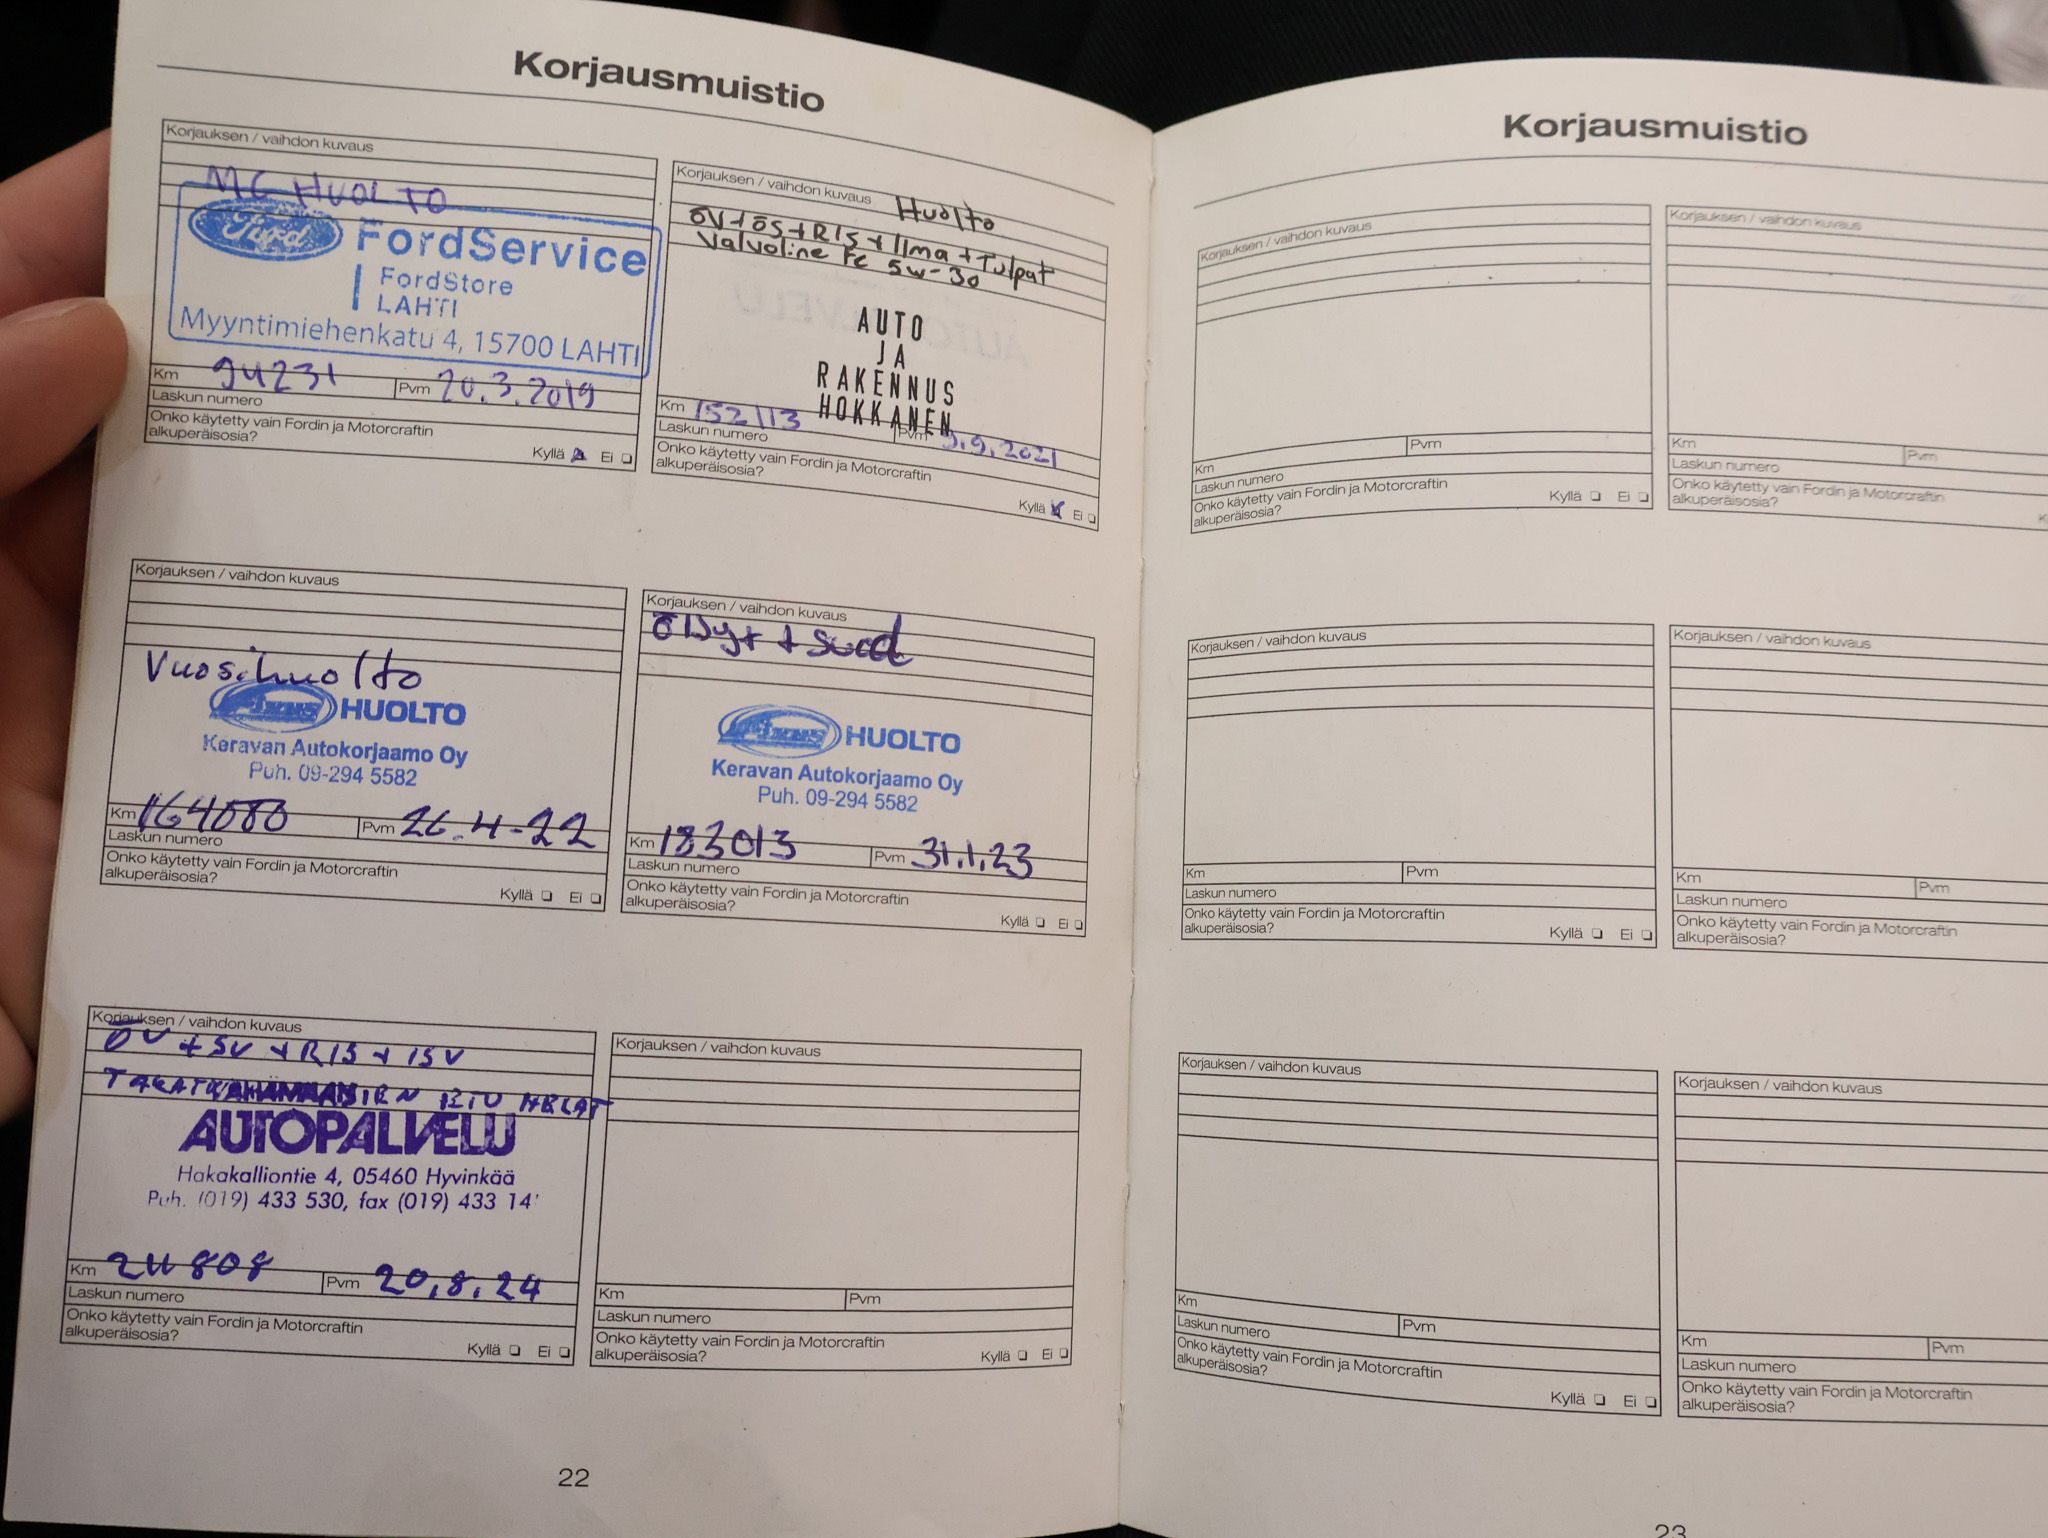 Korjausmuistio
Korjauksen / vaihdon kuvaus
HUOLTO
Ford
FordService
FordStore
LAHTI
Myyntimiehenkatu 4, 15700 LAHTI
Km 94231 Pvm 20.3.2019
Laskun numero
Onko käytetty vain Fordin ja Motorcraftin
alkuperäisosia?
Kyllä Ei
Korjauksen / vaihdon kuvaus Huolto
ÖV+ÖS+RIS+Ilma+Tulpat
Valvoline FE 5W-30
AUTO
JA
RAKENNUS
HOKKANEN
Km 152113 Pvm 9.9.2021
Laskun numero
Onko käytetty vain Fordin ja Motorcraftin
alkuperäisosia?
Kyllä Ei
Korjauksen / vaihdon kuvaus
Vuosihuolto
HUOLTO
Keravan Autokorjaamo Oy
Puh. 09-294 5582
Km 164080 Pvm 26.4-22
Laskun numero
Onko käytetty vain Fordin ja Motorcraftin
alkuperäisosia?
Kyllä Ei
Korjauksen / vaihdon kuvaus
HUOLTO
Keravan Autokorjaamo Oy
Puh. 09-294 5582
Km 183013 Pvm 31.1.23
Laskun numero
Onko käytetty vain Fordin ja Motorcraftin
alkuperäisosia?
Kyllä Ei
Korjauksen / vaihdon kuvaus
ÖV + SV + RIS + ISV
AUTOPALVELU
Hakakalliontie 4, 05460 Hyvinkää
Puh. (019) 433 530, fax (019) 433 14
Km 211808 Pvm 20.8.24
Laskun numero
Onko käytetty vain Fordin ja Motorcraftin
alkuperäisosia?
Kyllä Ei
Korjauksen / vaihdon kuvaus
Km Pvm
Laskun numero
Onko käytetty vain Fordin ja Motorcraftin
alkuperäisosia?
Kyllä Ei
22
Korjausmuistio
Korjauksen / vaihdon kuvaus
Km Pvm
Laskun numero
Onko käytetty vain Fordin ja Motorcraftin
alkuperäisosia?
Kyllä Ei
Korjauksen / vaihdon kuvaus
Km Pvm
Laskun numero
Onko käytetty vain Fordin ja Motorcraftin
alkuperäisosia?
Korjauksen / vaihdon kuvaus
Km Pvm
Laskun numero
Onko käytetty vain Fordin ja Motorcraftin
alkuperäisosia?
Kyllä Ei
Korjauksen / vaihdon kuvaus
Km Pvm
Laskun numero
Onko käytetty vain Fordin ja Motorcraftin
alkuperäisosia?
Korjauksen / vaihdon kuvaus
Km Pvm
Laskun numero
Onko käytetty vain Fordin ja Motorcraftin
alkuperäisosia?
Kyllä Ei
Korjauksen / vaihdon kuvaus
Km Pvm
Laskun numero
Onko käytetty vain Fordin ja Motorcraftin
alkuperäisosia?
23